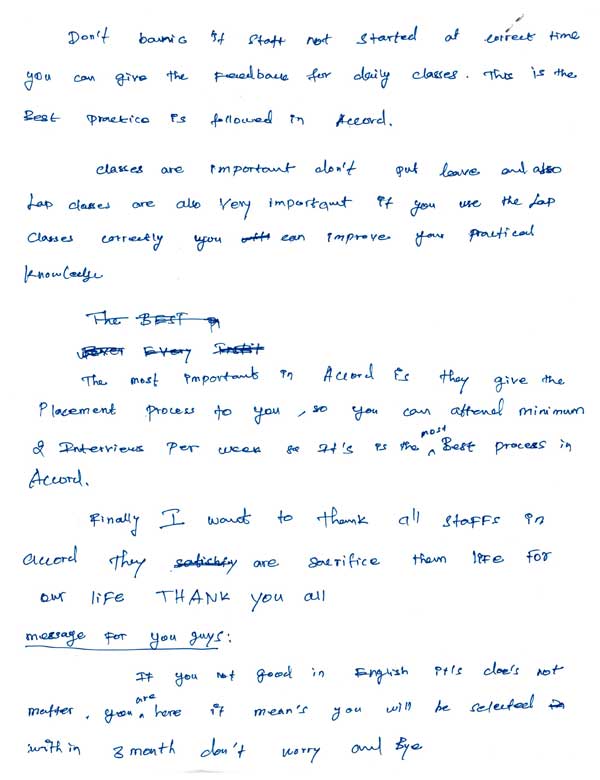 Don't bavnic if staff not started at correct time
you can give the Feeedback for daily classes. This is the
Best practice is followed in Accord.
classes are important don't put leave and also
Lap classes are also Very important if you use the Lap
Classes correctly you can improve your practical
knowledge
The BEST
Every Instit
The most important in Accord is they give the
Placement process to you, so you can attend minimum
2 Interviews Per week so It's is the most Best process in
Accord.
Finally I want to thank all staffs in
accord they satisfy are sacrifice them life for
our life THANK you all
message for you guys:
If you not good in English it's doe's not
matter. you are here it mean's you will be selected in
with in 3 month don't worry and Bye